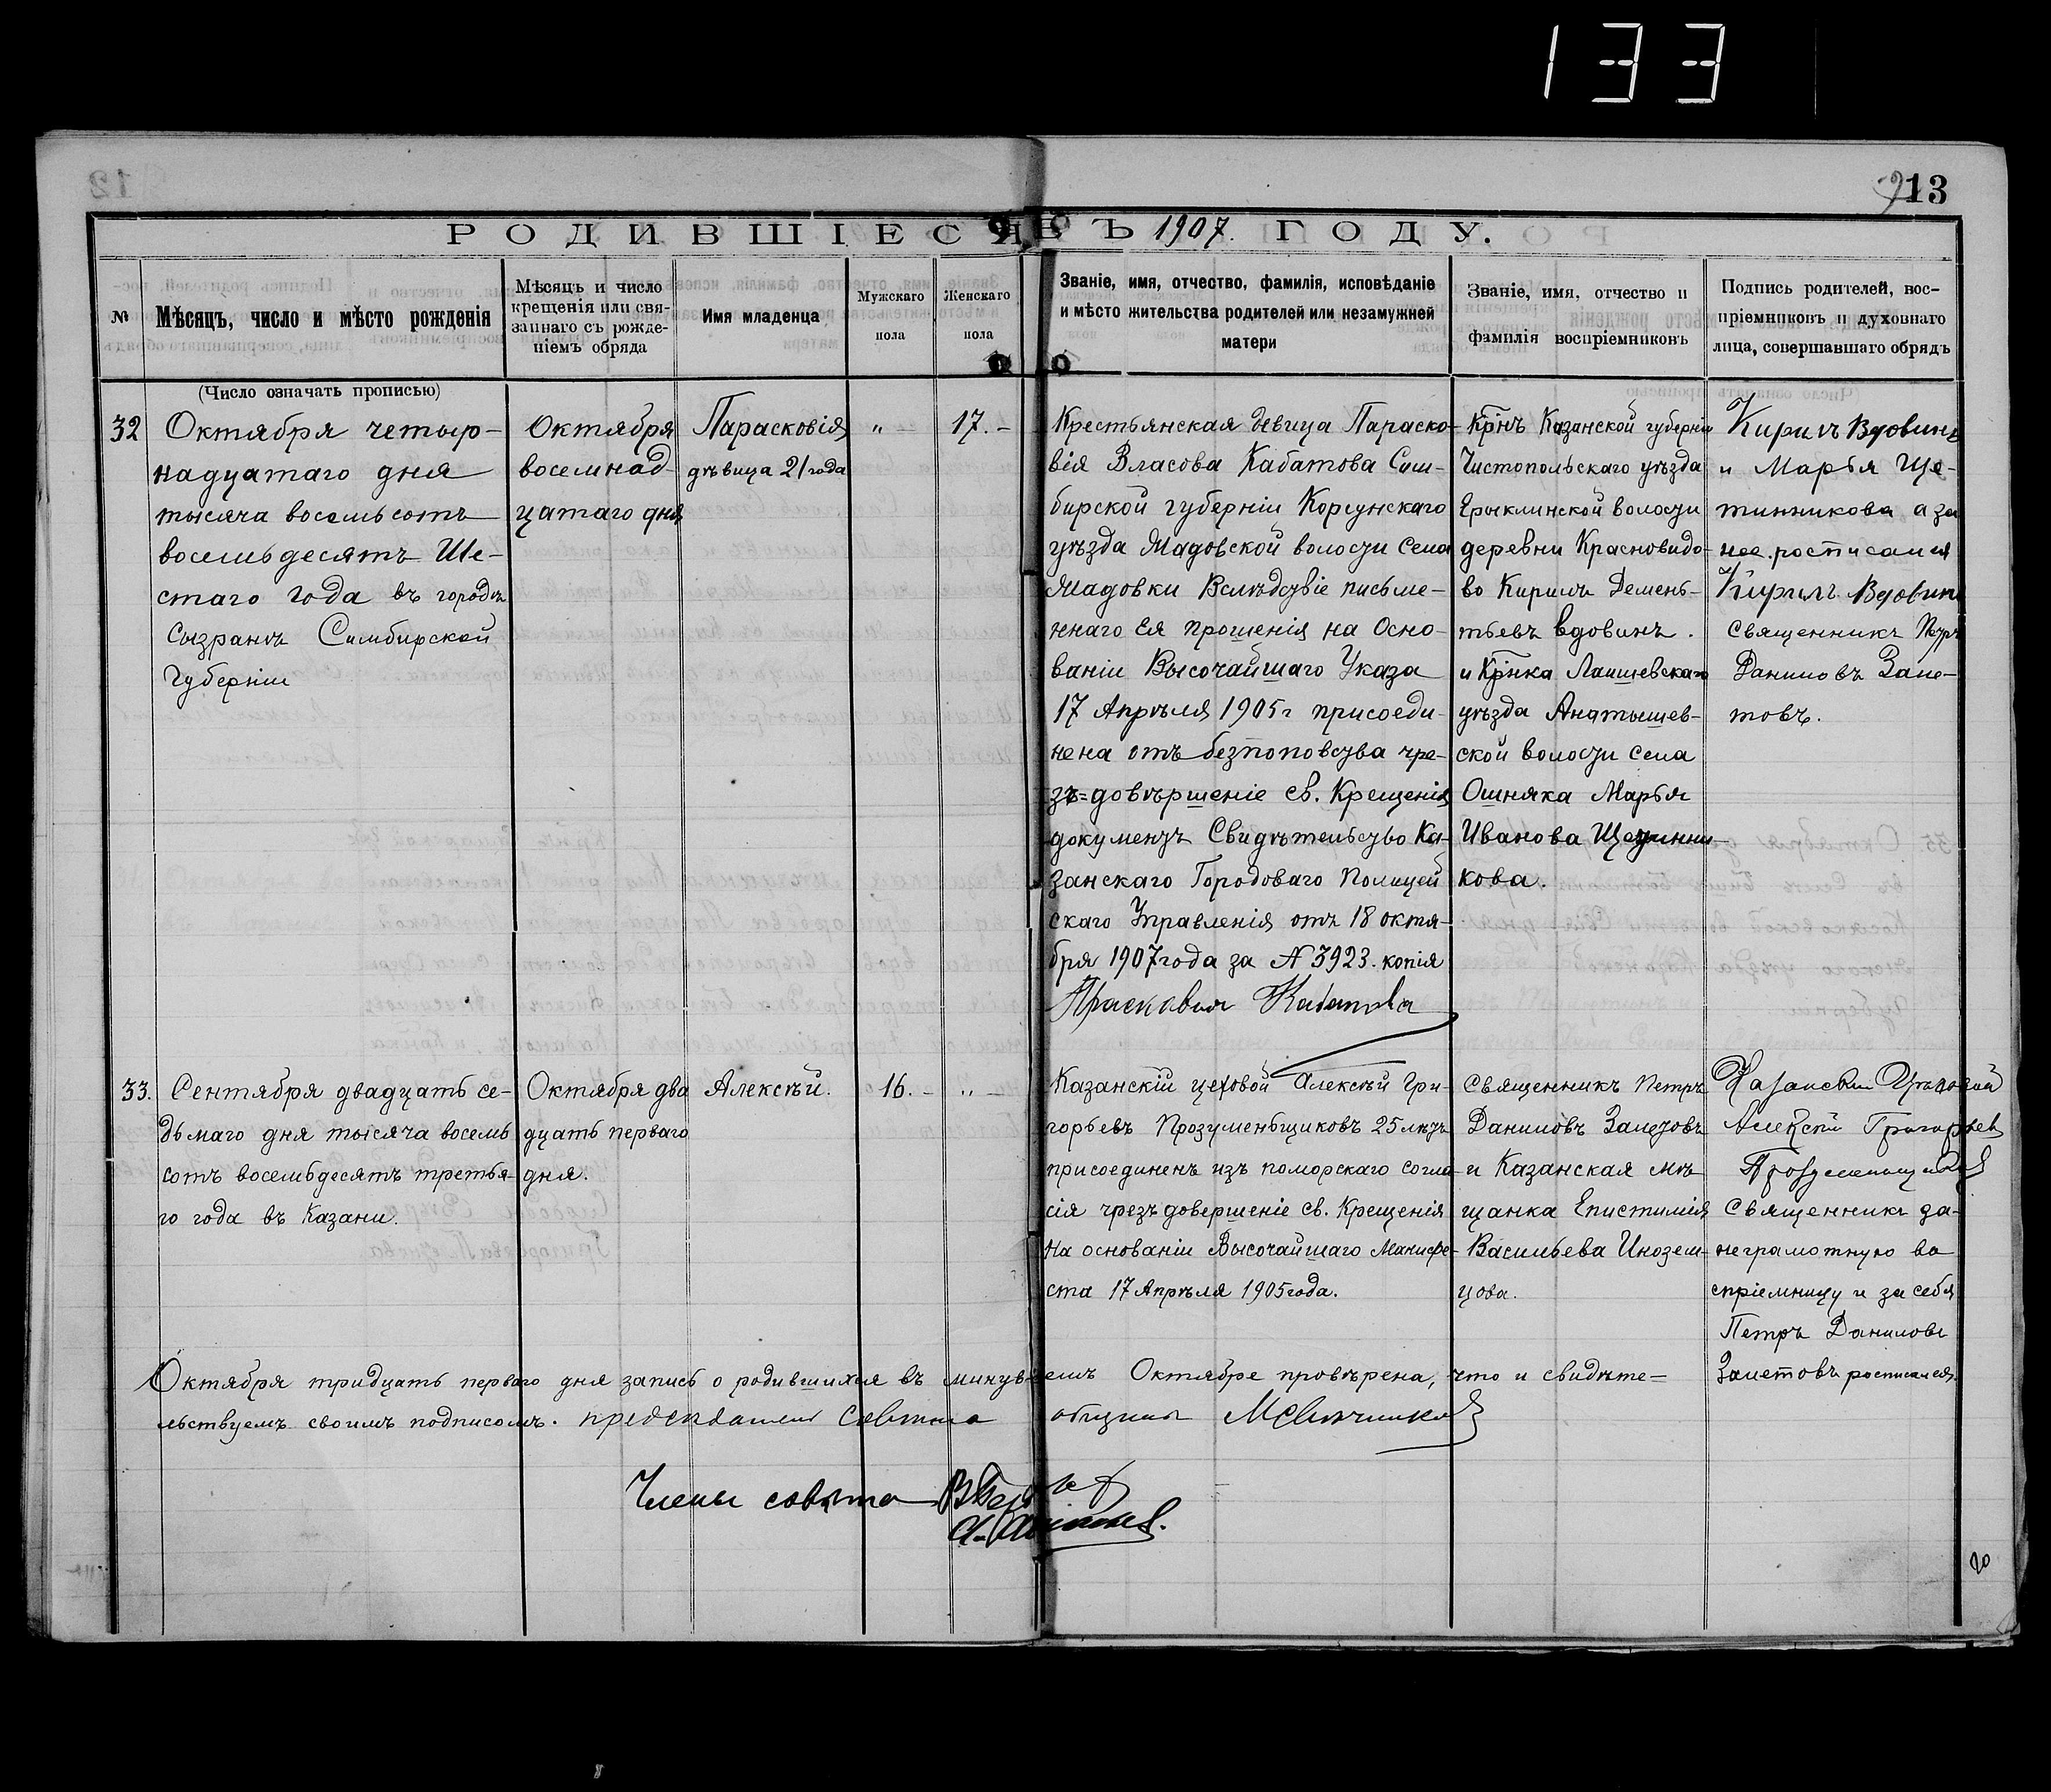 133
13
РОДИВШІЕСЯ ВЪ 1907. ГОДУ.
№
Мѣсяцъ, число и мѣсто рожденія
Мѣсяцъ и число
крещенія или свя-
заннаго съ рожде-
ніемъ обряда
Имя младенца
Мужскаго
пола
Женскаго
пола
Званіе, имя, отчество, фамилія, исповѣданіе
и мѣсто жительства родителей или незамужней
матери
Званіе, имя, отчество и
фамилія воспріемниковъ
Подпись родителей, вос-
пріемниковъ и духовнаго
лица, совершавшаго обрядъ
(Число означать прописью)
32
Октября четыр-
надцатаго дня
тысяча восемьсотъ
восемьдесятъ Ше-
стаго года въ городѣ
Сызранѣ Симбирской
Губерніи
Октября
восемнад-
цатаго дня
Парасковія
дѣвица 21 года
"
17.-
Крестьянская девица Параско-
вія Власова Кабатова Сим-
бирской губерніи Корсунскаго
уѣзда Мадовской волости Села
Мадовки Вслѣдствіе письме-
ннаго Ея прошенія на Осно-
ваніи Высочайшаго Указа
17 Апрѣля 1905 г присоеди-
нена отъ безпоповства чре-
зъ=довѣршеніе св. Крещенія
документъ Свидѣтельство Ка-
занскаго Городоваго Полицей
скаго Управленія отъ 18 октя-
бря 1907 года за № 3923. копія
Прасковья Кабатова
Крнъ Казанской губерніи
Чистопольскаго уѣзда
Ерыклинской волости
деревни Красновидо-
во Кирилъ Демень-
тьевъ Вдовинъ.
и Крнка Лаишевскаго
уѣзда Анатышев-
ской волости Села
Ошняка Марья
Иванова Щетинни-
кова.
Кирилъ Вдовинъ
и Марья Ще-
тинникова а за
нее росписался
Кирилъ Вдовинъ
Священникъ Петръ
Даниловъ Зале-
товъ.
33.
Сентября двадцать се-
дьмаго дня тысяча восемь
сотъ восемьдесятъ третья-
го года въ Казани.
Октября два
дцать перваго
дня.
Алексѣй.
16.-
"
Казанскій цеховой Алексѣй Гри-
горьевъ Прозуменьщиковъ 25 лѣтъ
присоединенъ изъ поморскаго согла-
сія чрезъ довершеніе св. Крещенія
На основаніи Высочайшаго Манифе-
ста 17 Апрѣля 1905 года.
Священникъ Петръ
Даниловъ Залетовъ
и Казанская мѣ-
щанка Епистимія
Васильева Инозем-
цова.
Алексей Григорьев
Священникъ за-
неграмотную во
спріемницу и за себя
Петръ Даниловъ
Залетовъ росписался.
Октября тридцать перваго дня запись о родившихся въ минувшемъ Октябре провѣрена, что и свидѣте-
льствуемъ своимъ подписомъ. председатель Совета общины
Члены совѣта
20